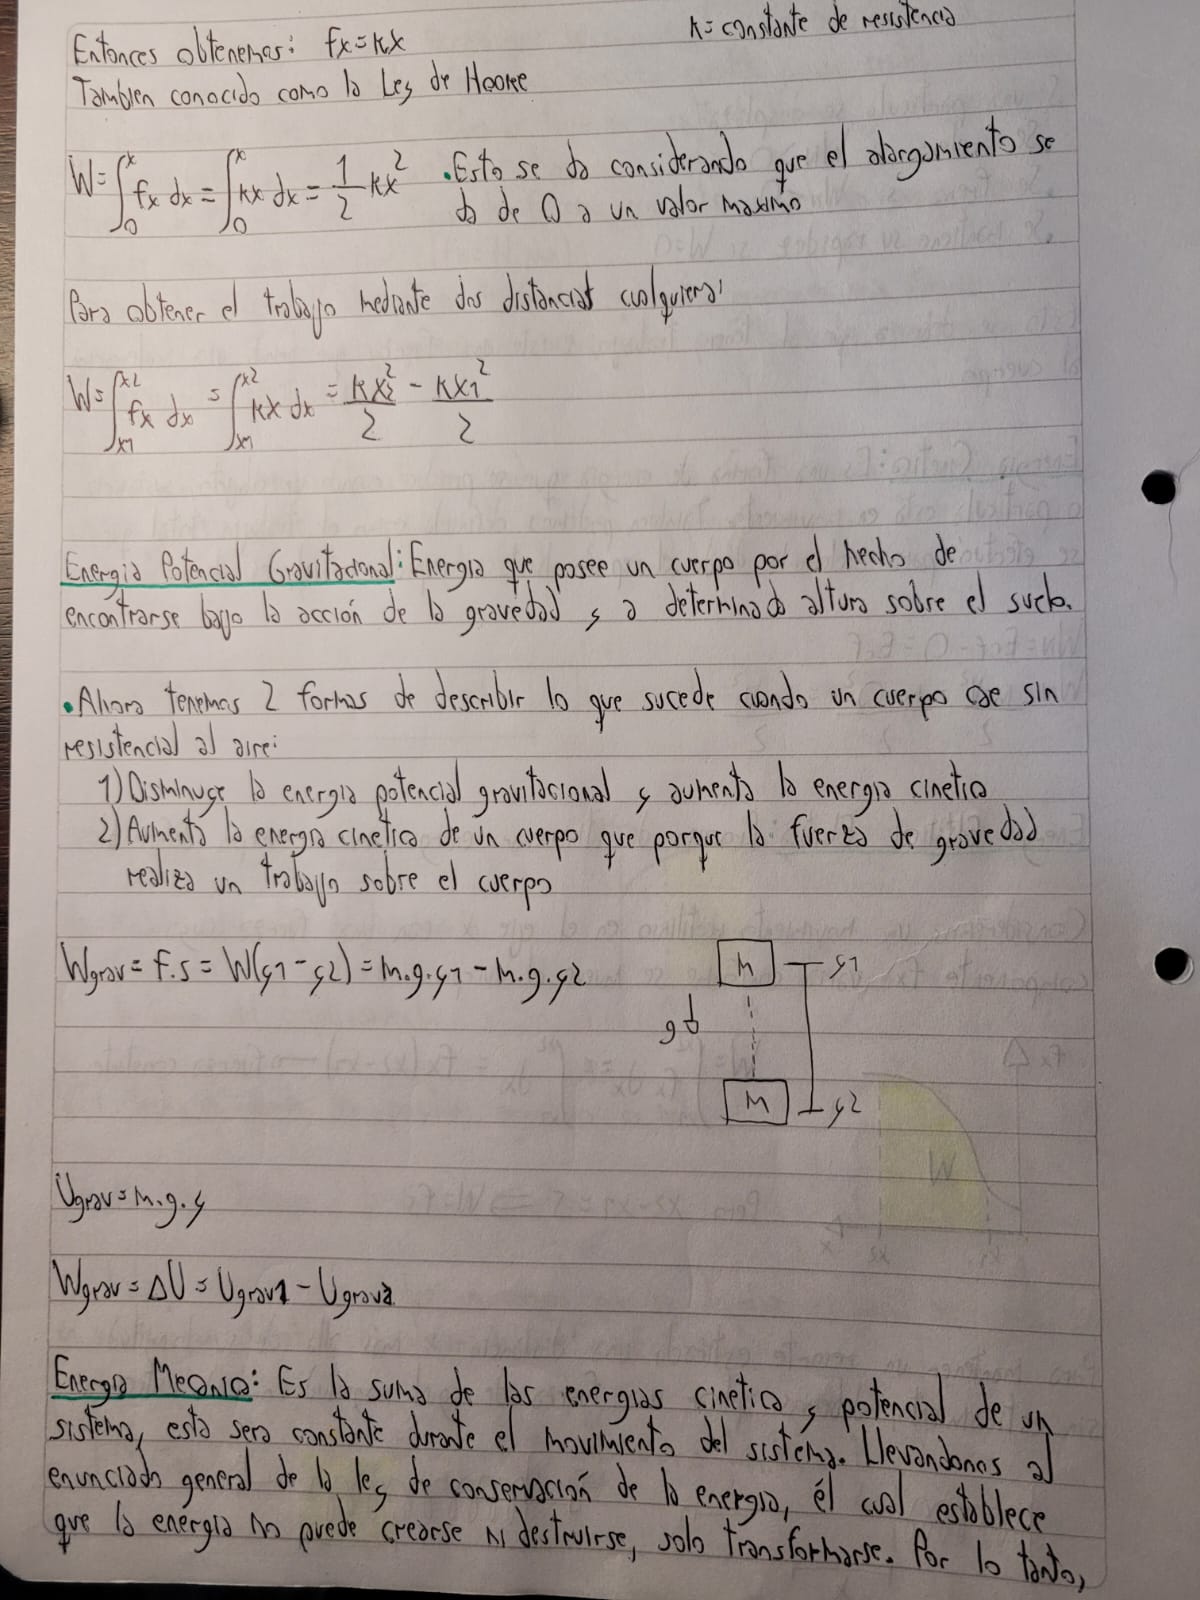 Entonces obtenemos: fx=kx
k=constante de resistencia
Tambien conocido como la Ley de Hooke
W=∫₀ˣ fx dx = ∫₀ˣ kx dx = 1/2 kx² •Esto se da considerando que el alargamiento se
da de 0 a un valor maximo
Para obtener el trabajo mediante dos distancias cualquiera:
W=∫ₓ₁ˣ² fx dx = ∫ₓ₁ˣ² kx dx = kx2²/2 - kx1²/2
Energia Potencial Gravitacional: Energia que posee un cuerpo por el hecho de
encontrarse bajo la acción de la gravedad y a determinada altura sobre el suelo.
•Ahora tenemos 2 formas de describir lo que sucede cuando un cuerpo cae sin
resistencial al aire:
1) Disminuye la energia potencial gravitacional y aumenta la energia cinetica
2) Aumenta la energia cinetica de un cuerpo que porque la fuerza de gravedad
realiza un trabajo sobre el cuerpo
Wgrav = f.s = W(y1-y2) = m.g.y1 - m.g.y2
M
y1
g
M
y2
Ugrav = m.g.y
Wgrav = ΔU = Ugrav1 - Ugrav2
Energia Mecanica: Es la suma de las energias cinetica y potencial de un
sistema, esta sera constante durante el movimiento del sistema. Llevandonos al
enunciado general de la ley de conservación de la energia, él cual establece
que la energia no puede crearse ni destruirse, solo transformarse. Por lo tanto,